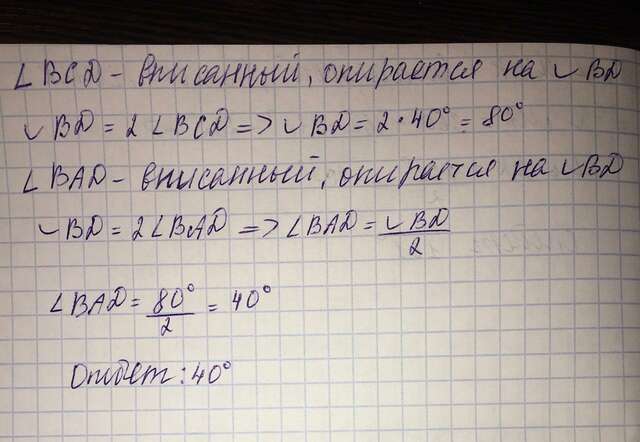 ∠BCD - вписанный, опирается на ◡BD
◡BD = 2∠BCD => ◡BD = 2·40° = 80°
∠BAD - вписанный, опирается на ◡BD
◡BD = 2∠BAD => ∠BAD = ◡BD/2
∠BAD = 80°/2 = 40°
Ответ: 40°